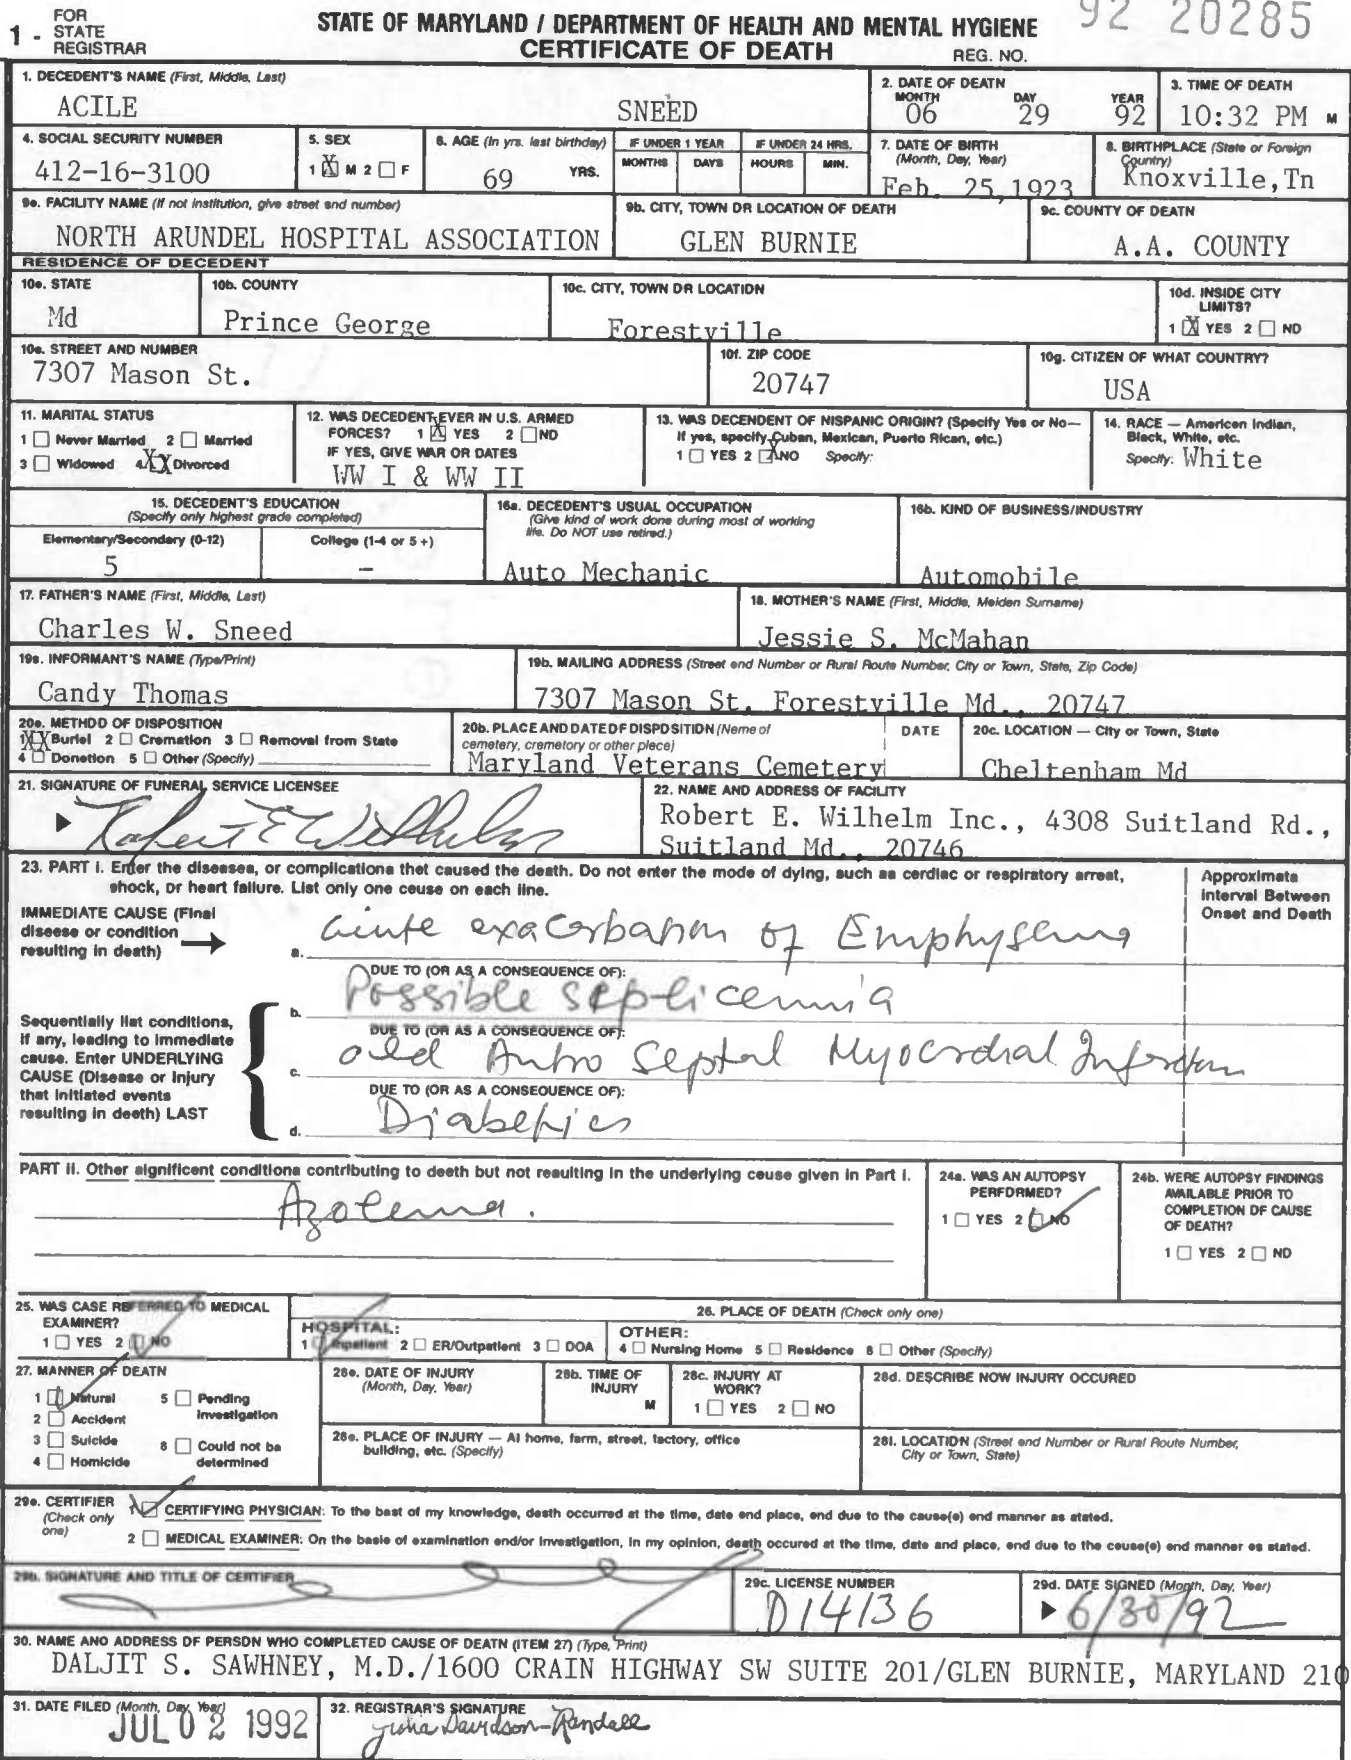 1 - FOR STATE REGISTRAR
STATE OF MARYLAND / DEPARTMENT OF HEALTH AND MENTAL HYGIENE
CERTIFICATE OF DEATH
REG. NO. 92 20285
1. DECEDENT'S NAME (First, Middle, Last)
ACILE SNEED
2. DATE OF DEATH
MONTH DAY YEAR
06 29 92
3. TIME OF DEATH
10:32 PM M
4. SOCIAL SECURITY NUMBER
412-16-3100
5. SEX
1 X M 2 F
6. AGE (In yrs. last birthday)
69 YRS.
IF UNDER 1 YEAR
MONTHS DAYS
IF UNDER 24 HRS.
HOURS MIN.
7. DATE OF BIRTH
(Month, Day, Year)
Feb. 25,1923
8. BIRTHPLACE (State or Foreign Country)
Knoxville,Tn
9a. FACILITY NAME (If not institution, give street and number)
NORTH ARUNDEL HOSPITAL ASSOCIATION
9b. CITY, TOWN OR LOCATION OF DEATH
GLEN BURNIE
9c. COUNTY OF DEATH
A.A. COUNTY
RESIDENCE OF DECEDENT
10a. STATE
Md
10b. COUNTY
Prince George
10c. CITY, TOWN OR LOCATION
Forestville
10d. INSIDE CITY LIMITS?
1 X YES 2 NO
10e. STREET AND NUMBER
7307 Mason St.
10f. ZIP CODE
20747
10g. CITIZEN OF WHAT COUNTRY?
USA
11. MARITAL STATUS
1 Never Married 2 Married
3 Widowed 4 XX Divorced
12. WAS DECEDENT EVER IN U.S. ARMED
FORCES? 1 X YES 2 NO
IF YES, GIVE WAR OR DATES
WW I & WW II
13. WAS DECENDENT OF HISPANIC ORIGIN? (Specify Yes or No—
If yes, specify Cuban, Mexican, Puerto Rican, etc.)
1 YES 2 X NO Specify:
14. RACE — American Indian,
Black, White, etc.
Specify: White
15. DECEDENT'S EDUCATION
(Specify only highest grade completed)
Elementary/Secondary (0-12) College (1-4 or 5+)
5 –
16a. DECEDENT'S USUAL OCCUPATION
(Give kind of work done during most of working
life. Do NOT use retired.)
Auto Mechanic
16b. KIND OF BUSINESS/INDUSTRY
Automobile
17. FATHER'S NAME (First, Middle, Last)
Charles W. Sneed
18. MOTHER'S NAME (First, Middle, Maiden Surname)
Jessie S. McMahan
19a. INFORMANT'S NAME (Type/Print)
Candy Thomas
19b. MAILING ADDRESS (Street and Number or Rural Route Number, City or Town, State, Zip Code)
7307 Mason St. Forestville Md., 20747
20a. METHOD OF DISPOSITION
1 XX Burial 2 Cremation 3 Removal from State
4 Donation 5 Other (Specify)
20b. PLACE AND DATE OF DISPOSITION (Name of DATE
cemetery, crematory or other place)
Maryland Veterans Cemetery
20c. LOCATION — City or Town, State
Cheltenham Md
21. SIGNATURE OF FUNERAL SERVICE LICENSEE
Robert E Wilhelm
22. NAME AND ADDRESS OF FACILITY
Robert E. Wilhelm Inc., 4308 Suitland Rd.,
Suitland Md., 20746
23. PART I. Enter the diseases, or complications that caused the death. Do not enter the mode of dying, such as cardiac or respiratory arrest,
shock, or heart failure. List only one cause on each line.
Approximate
Interval Between
Onset and Death
IMMEDIATE CAUSE (Final
disease or condition
resulting in death)
a. acute exacerbation of Emphysema
DUE TO (OR AS A CONSEQUENCE OF):
b. Possible septicemia
DUE TO (OR AS A CONSEQUENCE OF):
c. old Antro Septal Myocardial Infarction
DUE TO (OR AS A CONSEQUENCE OF):
d. Diabetics
Sequentially list conditions,
if any, leading to immediate
cause. Enter UNDERLYING
CAUSE (Disease or injury
that initiated events
resulting in death) LAST
PART II. Other significant conditions contributing to death but not resulting in the underlying cause given in Part I.
Azotema.
24a. WAS AN AUTOPSY
PERFORMED?
1 YES 2 NO
24b. WERE AUTOPSY FINDINGS
AVAILABLE PRIOR TO
COMPLETION OF CAUSE
OF DEATH?
1 YES 2 NO
25. WAS CASE REFERRED TO MEDICAL
EXAMINER?
1 YES 2 NO
26. PLACE OF DEATH (Check only one)
HOSPITAL:
1 Inpatient 2 ER/Outpatient 3 DOA
OTHER:
4 Nursing Home 5 Residence 6 Other (Specify)
27. MANNER OF DEATH
1 Natural 5 Pending
2 Accident Investigation
3 Suicide 6 Could not be
4 Homicide determined
28a. DATE OF INJURY
(Month, Day, Year)
28b. TIME OF
INJURY
M
28c. INJURY AT
WORK?
1 YES 2 NO
28d. DESCRIBE HOW INJURY OCCURED
28e. PLACE OF INJURY — At home, farm, street, factory, office
building, etc. (Specify)
28f. LOCATION (Street and Number or Rural Route Number,
City or Town, State)
29a. CERTIFIER
(Check only
one)
1 CERTIFYING PHYSICIAN: To the best of my knowledge, death occurred at the time, date and place, and due to the cause(s) and manner as stated.
2 MEDICAL EXAMINER: On the basis of examination and/or investigation, in my opinion, death occured at the time, date and place, and due to the cause(s) and manner as stated.
29b. SIGNATURE AND TITLE OF CERTIFIER
29c. LICENSE NUMBER
D14136
29d. DATE SIGNED (Month, Day, Year)
6/30/92
30. NAME AND ADDRESS OF PERSON WHO COMPLETED CAUSE OF DEATH (ITEM 27) (Type, Print)
DALJIT S. SAWHNEY, M.D./1600 CRAIN HIGHWAY SW SUITE 201/GLEN BURNIE, MARYLAND 210
31. DATE FILED (Month, Day, Year)
JUL 02 1992
32. REGISTRAR'S SIGNATURE
Julia Davidson-Randall